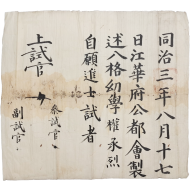 同治三年八月十七
日江華府公都會製
述入格幼學權承烈
自願進士試者
上試官
參試官
副試官